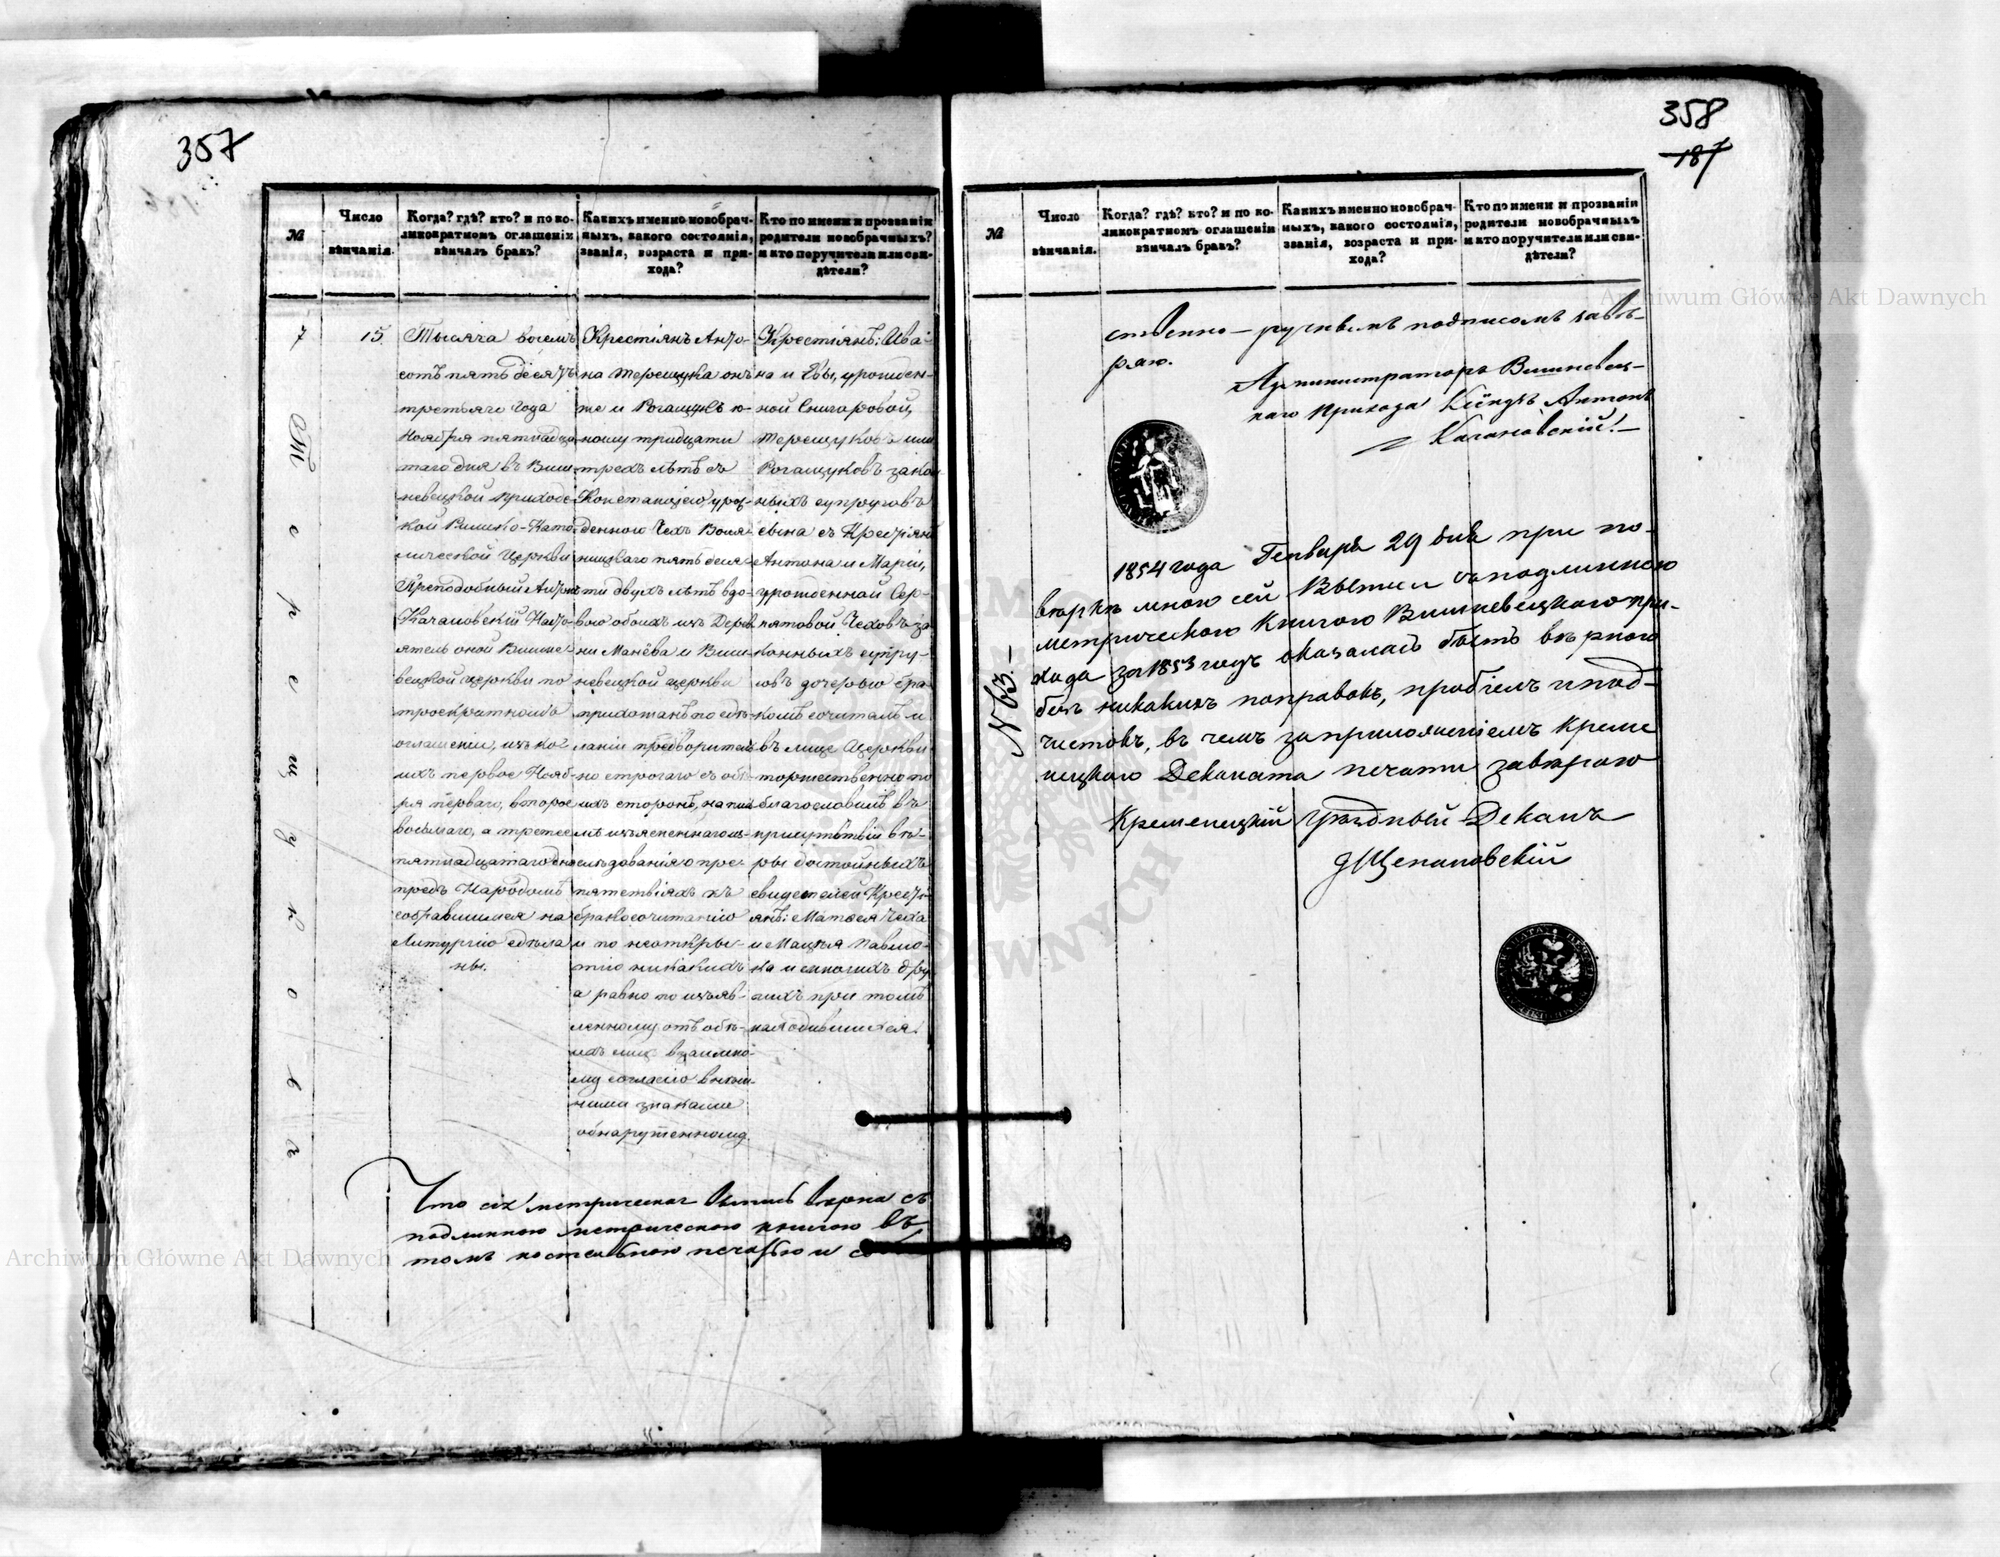 357
№
Число
вѣнчанія.
Когда? гдѣ? кто? и по ко-
ликократномъ оглашеніи
вѣнчалъ бракъ?
Какихъ именно новобрач-
ныхъ, какого состоянія,
званія, возраста и при-
хода?
Кто по имени и прозванію
родители новобрачныхъ?
и кто поручители или сви-
дѣтели?
7
Терещукова
15
Тысяча восемь
сотъ пятьдесятъ
третьяго года
Ноября пятнадца
таго дня въ Виш-
невецкой приходс-
кой Римско-Като-
лической Церкви
Преподобный Антонъ
Качановскій Насто-
ятель оной Вишне-
вецкой церкви по
троекратномъ
оглашеніи, изъ ко-
ихъ первое Нояб-
ря перваго, второе
восьмаго, а третее
пятнадцатаго дня
предъ Народомъ
собравшимся на
Литургію сдѣла
ны.
Крестіянъ Анто-
на Терещука онъ
же и Рогащукъ ю-
ношу тридцати
трехъ лѣтъ съ
Констанціею урож-
денною Чехъ
пятьдеся-
ти двухъ лѣтъ вдо-
вою обоихъ изъ Дерев
ни Манёва и Виш-
невецкой церкви
прихожанъ по сдѣ-
ланіи предворитель
но строгаго съ обѣ-
ихъ сторонъ, на пись
мѣ изъясненнаго из-
слѣдованія о пре-
пятствіяхъ къ
бракосочитанію
и по неоткры-
тію никакихъ
а равно по изъяв-
ленному отъ обѣ-
ихъ лицъ взаимно-
му согласію внѣш-
ними знаками
обнаруженному.
Крестіянъ: Ива-
на и Евы, урожден-
ной Снигоровой,
Терещуковъ или
Рогащуковъ закон
ныхъ супруговъ
сына съ Крестіян
Антона и Маріи,
урожденной Сер-
пятовой Чеховъ за-
конныхъ супру-
говъ дочерью бра-
комъ сочиталъ и
въ лице Церкви
торжественно по
благословилъ въ
присутствіи вѣ-
ры достойныхъ
свидетелей Крестi-
янъ: Матвея Чеха
и Мацѣя Павлю-
ка и многихъ дру
гихъ при томъ
находившихся.
Что сія метрическая выпись вѣрна съ
подлинною метрическою книгою въ
томъ костельною печатью и собс
358
187
№
Число
вѣнчанія.
Когда? гдѣ? кто? и по ко-
ликократномъ оглашеніи
вѣнчалъ бракъ?
Какихъ именно новобрач-
ныхъ, какого состоянія,
званія, возраста и при-
хода?
Кто по имени и прозванію
родители новобрачныхъ
и кто поручители или сви-
дѣтели?
ственно-ручнымъ подписомъ завѣ-
ряю.
Администраторъ Вишневец-
каго Прихода Ксіндзъ Антонъ
Качановскій!
№ 63.
1854 года Генваря 29 дня при по-
вѣркѣ мною сей Выписи съ подлинною
метрическою Книгою Вишневецкаго При-
хода за 1853 годъ оказалась быть вѣрною
безъ никакихъ поправокъ, пробѣлъ и под-
чистокъ, въ чемъ за приложеніемъ Креме
нецкаго Деканата печати завѣряю
Кременецкій Уѣздный Деканъ
Щепановскій
Archiwum Główne Akt Dawnych
Archiwum Główne Akt Dawnych